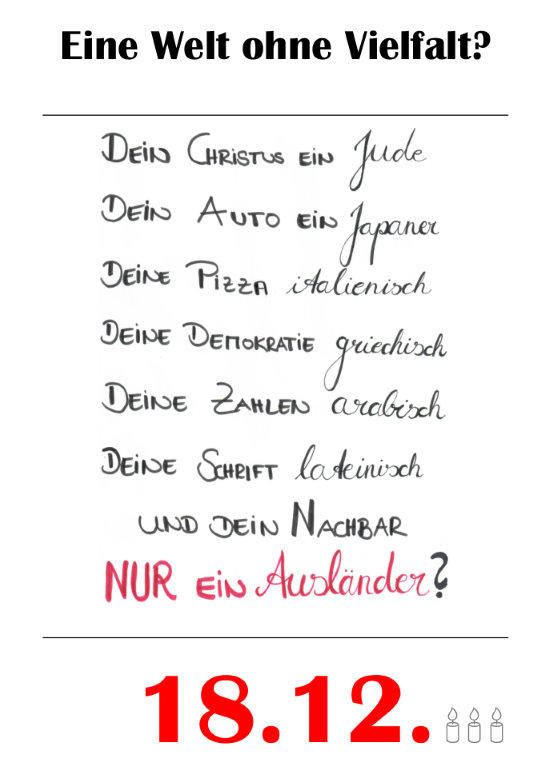 Eine Welt ohne Vielfalt?
DEiN CHRiSTUS EiN Jude
DEiN AUTO EiN Japaner
DEiNE PiZZA italienisch
DEiNE DEMOKRATiE griechisch
DEiNE ZAHLEN arabisch
DEiNE SCHRiFT lateinisch
UND DEiN NACHBAR
NUR EiN Ausländer?
18.12.